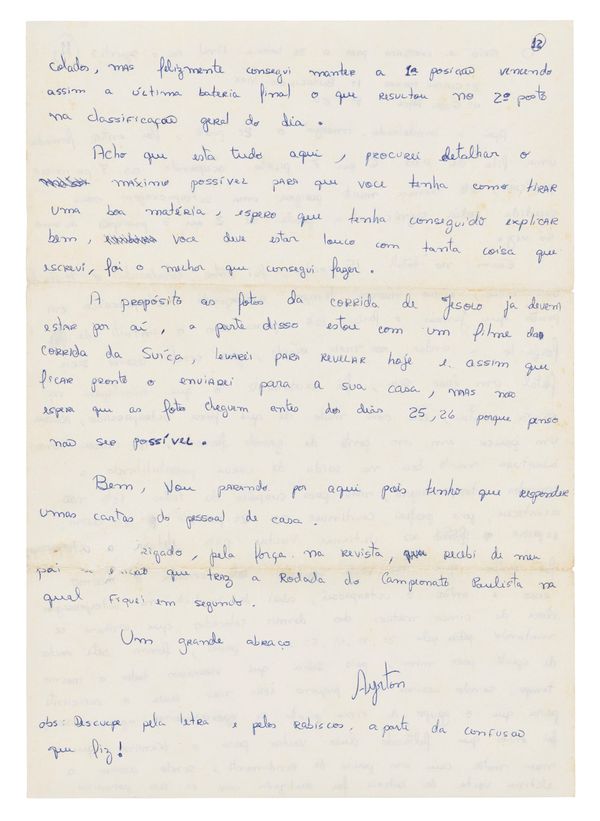 12
colados, mas felizmente consegui manter a 1ª posição vencendo
assim a última bateria final o que resultou no 2º posto
na classificação geral do dia.
Acho que esta tudo aqui, procurei detalhar o
máximo possível para que voce tenha como tirar
uma boa matéria, espero que tenha conseguido explicar
bem, voce deve estar louco com tanta coisa que
escrevi, foi o melhor que consegui fazer.
A propósito as fotos da corrida de Jesolo já devem
estar por aí, a parte disso estou com um filme da
corrida da Suíça, levarei para revelar hoje e assim que
ficar pronto o enviarei para a sua casa, mas não
espera que as fotos cheguem antes dos dias 25,26 porque penso
não ser possível.
Bem, vou parando por aqui pois tenho que responder
umas cartas do pessoal de casa.
pela força na revista, recebi de meu
pai que traz a Rodada do Campeonato Paulista na
qual fiquei em segundo.
Um grande abraço
Ayrton
obs: Desculpe pela letra e pelos rabiscos. a parte da confusão
que fiz!